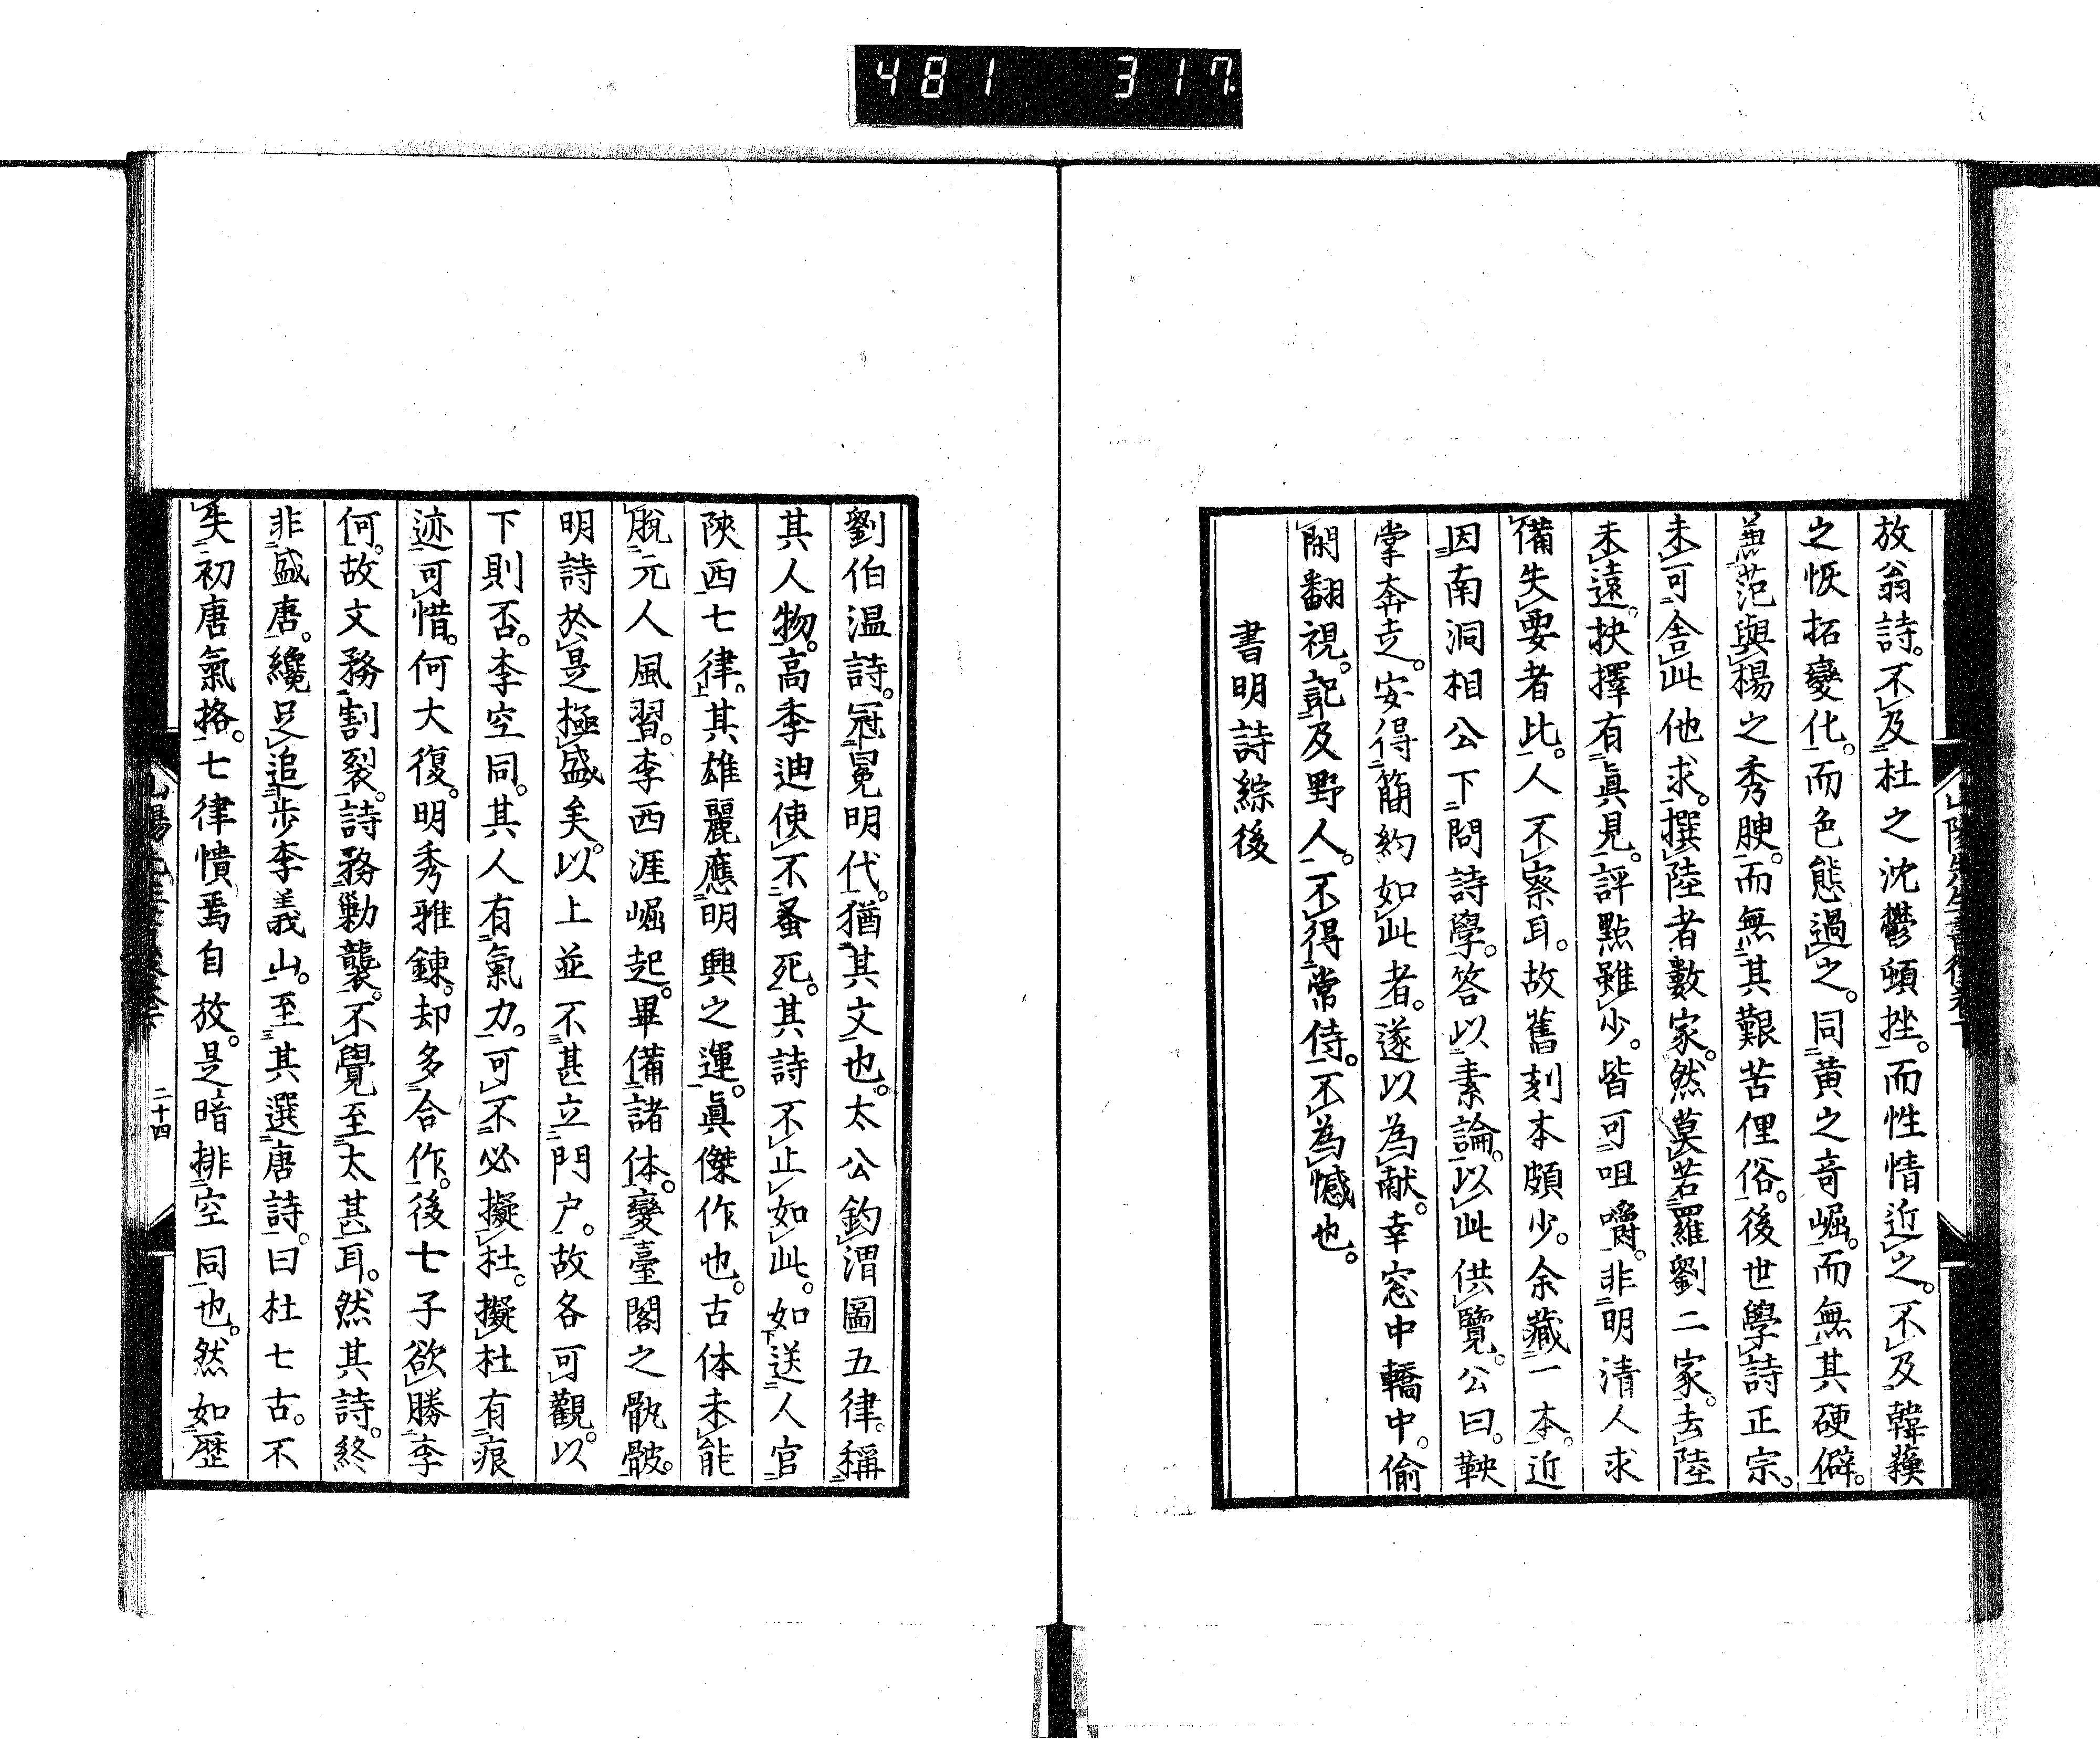 481 317.
放翁詩。不及杜之沈鬱頓挫。而性情近之。不及韓蘇
之恢拓變化。而色態過之。同黄之奇崛。而無其硬僻。
兼范與楊之秀腴。而無其艱苦俚俗。後世學詩正宗。
未可舎此他求。撰陸者數家。然莫若羅劉二家。去陸
未遠。抉擇有眞見。評點雖少。皆可咀嚼。非明清人求
備失要者比。人不察耳。故舊刻本頗少。余藏一本。近
因南洞相公下問詩學。答以素論。以此供覽。公曰。鞅
掌奔走。安得簡約如此者。遂以為献。幸窓中轎中。偷
閑翻視。記及野人。不得常侍。不為憾也。
書明詩綜後
劉伯温詩。冠冕明代。猶其文也。太公釣渭圖五律。稱
其人物。高季迪使不蚤死。其詩不止如此。如送人官
陝西七律。其雄麗應明興之運。眞傑作也。古体未能
脫元人風習。李西涯崛起。畢備諸体。變臺閣之骩骳。
明詩於是極盛矣。以上並不甚立門户。故各可觀。以
下則否。李空同。其人有氣力。可不必擬杜。擬杜有痕
迹可惜。何大復。明秀雅錬。却多合作。後七子欲勝李
何。故文務割裂。詩務勦襲。不覺至太甚耳。然其詩。終
非盛唐。纔足追步李義山。至其選唐詩。曰杜七古。不
失初唐氣格。七律憒焉自放。是暗排空同也。然如歴
二十四